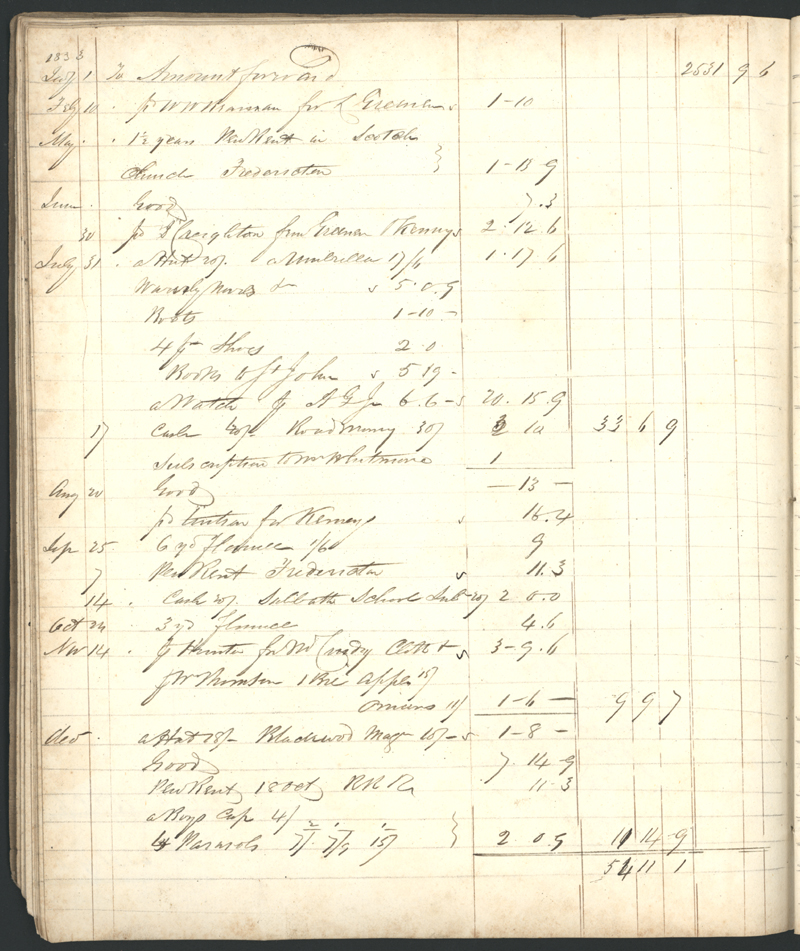 1833
Jany 1 To Amount forward 2531 9 6
Feby 10 . pd for 1-10
May . 1½ years Pew Rent in Scotch
Church Fredericton 1-18 9
June . Goods 7.3
30 pd Creighton from Freeman Kennys 2.12.6
July 31 . a Hat 20/. a Umbrella 17/6 1.17.6
Waverly Novels & s 5.0.9
Boots 1-10-
4 pr Shoes 2.0
Books to St John s 5 19-
a Watch 6.6-s 20.15.9
17 Cash 20/- Road money 30/ 2 10 33 6 9
Subscription to Mr Whitmore 1
Aug 20 Goods -13-
pd for Kennys 16.4
Sep 25 6 yd flannel 1/6 9
7 Pew Rent Fredericton s 11.3
14 . Cash 20/. Sabbath School Sub 20/ 2 0.0
Oct 24 3 yd flannel 4.6
Nov 14 . Hunter for Cloth & s 3-9.6
Thomson 1 Apples 15/
Onions 11/ 1-6- 9 9 7
dec . a Hat 18/- Blackwood Magz 10/-s 1-8-
Goods 7.14-9
Pew Rent 18 Oct 11-3
a Boys Cap 4/
4 Parasols 7/. 7/9 15/ 2.0.9 11 14-9
54 11 1